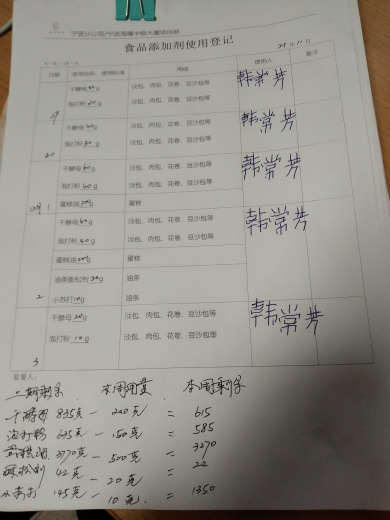 宁波分公司/宁波海曙中银大厦项目部
食品添加剂使用登记
21年11月
日期 使用名称 使用标准 用途 使用人 备注
干酵母 g 淡包、肉包、花卷、豆沙包等 韩常芳
泡打粉 20g 淡包、肉包、花卷、豆沙包等
29
干酵母 g 淡包、肉包、花卷、豆沙包等 韩常芳
泡打粉 30g 淡包、肉包、花卷、豆沙包等
30
干酵母 60g 淡包、肉包、花卷、豆沙包等 韩常芳
泡打粉 60g 淡包、肉包、花卷、豆沙包等
1 蛋糕油 g 蛋糕
干酵母 60g 淡包、肉包、花卷、豆沙包等 韩常芳
泡打粉 40g 淡包、肉包、花卷、豆沙包等
蛋糕油 g 蛋糕
油条膨松剂 20g 油条
2 小苏打 10g 油条
干酵母 20g 淡包、肉包、花卷、豆沙包等 韩常芳
泡打粉 10g 淡包、肉包、花卷、豆沙包等
3
监督人：
上期剩余 本周用量 本周剩余
干酵母 835克 - 220克 = 615
泡打粉 - 150克 = 585
蛋糕油 3770克 - 500克 = 3270
膨松剂 42克 - 20克 = 22
小苏打 - 10克 = 1350